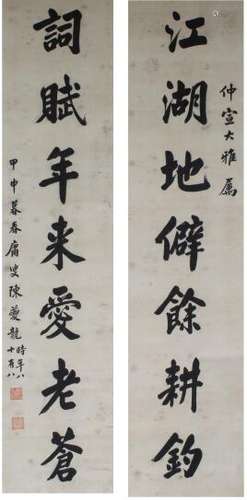 江湖地僻餘耕釣
仲宣大雅屬
詞賦年来愛老蒼
甲申暮春庸叟陳夔龍時年八十有八